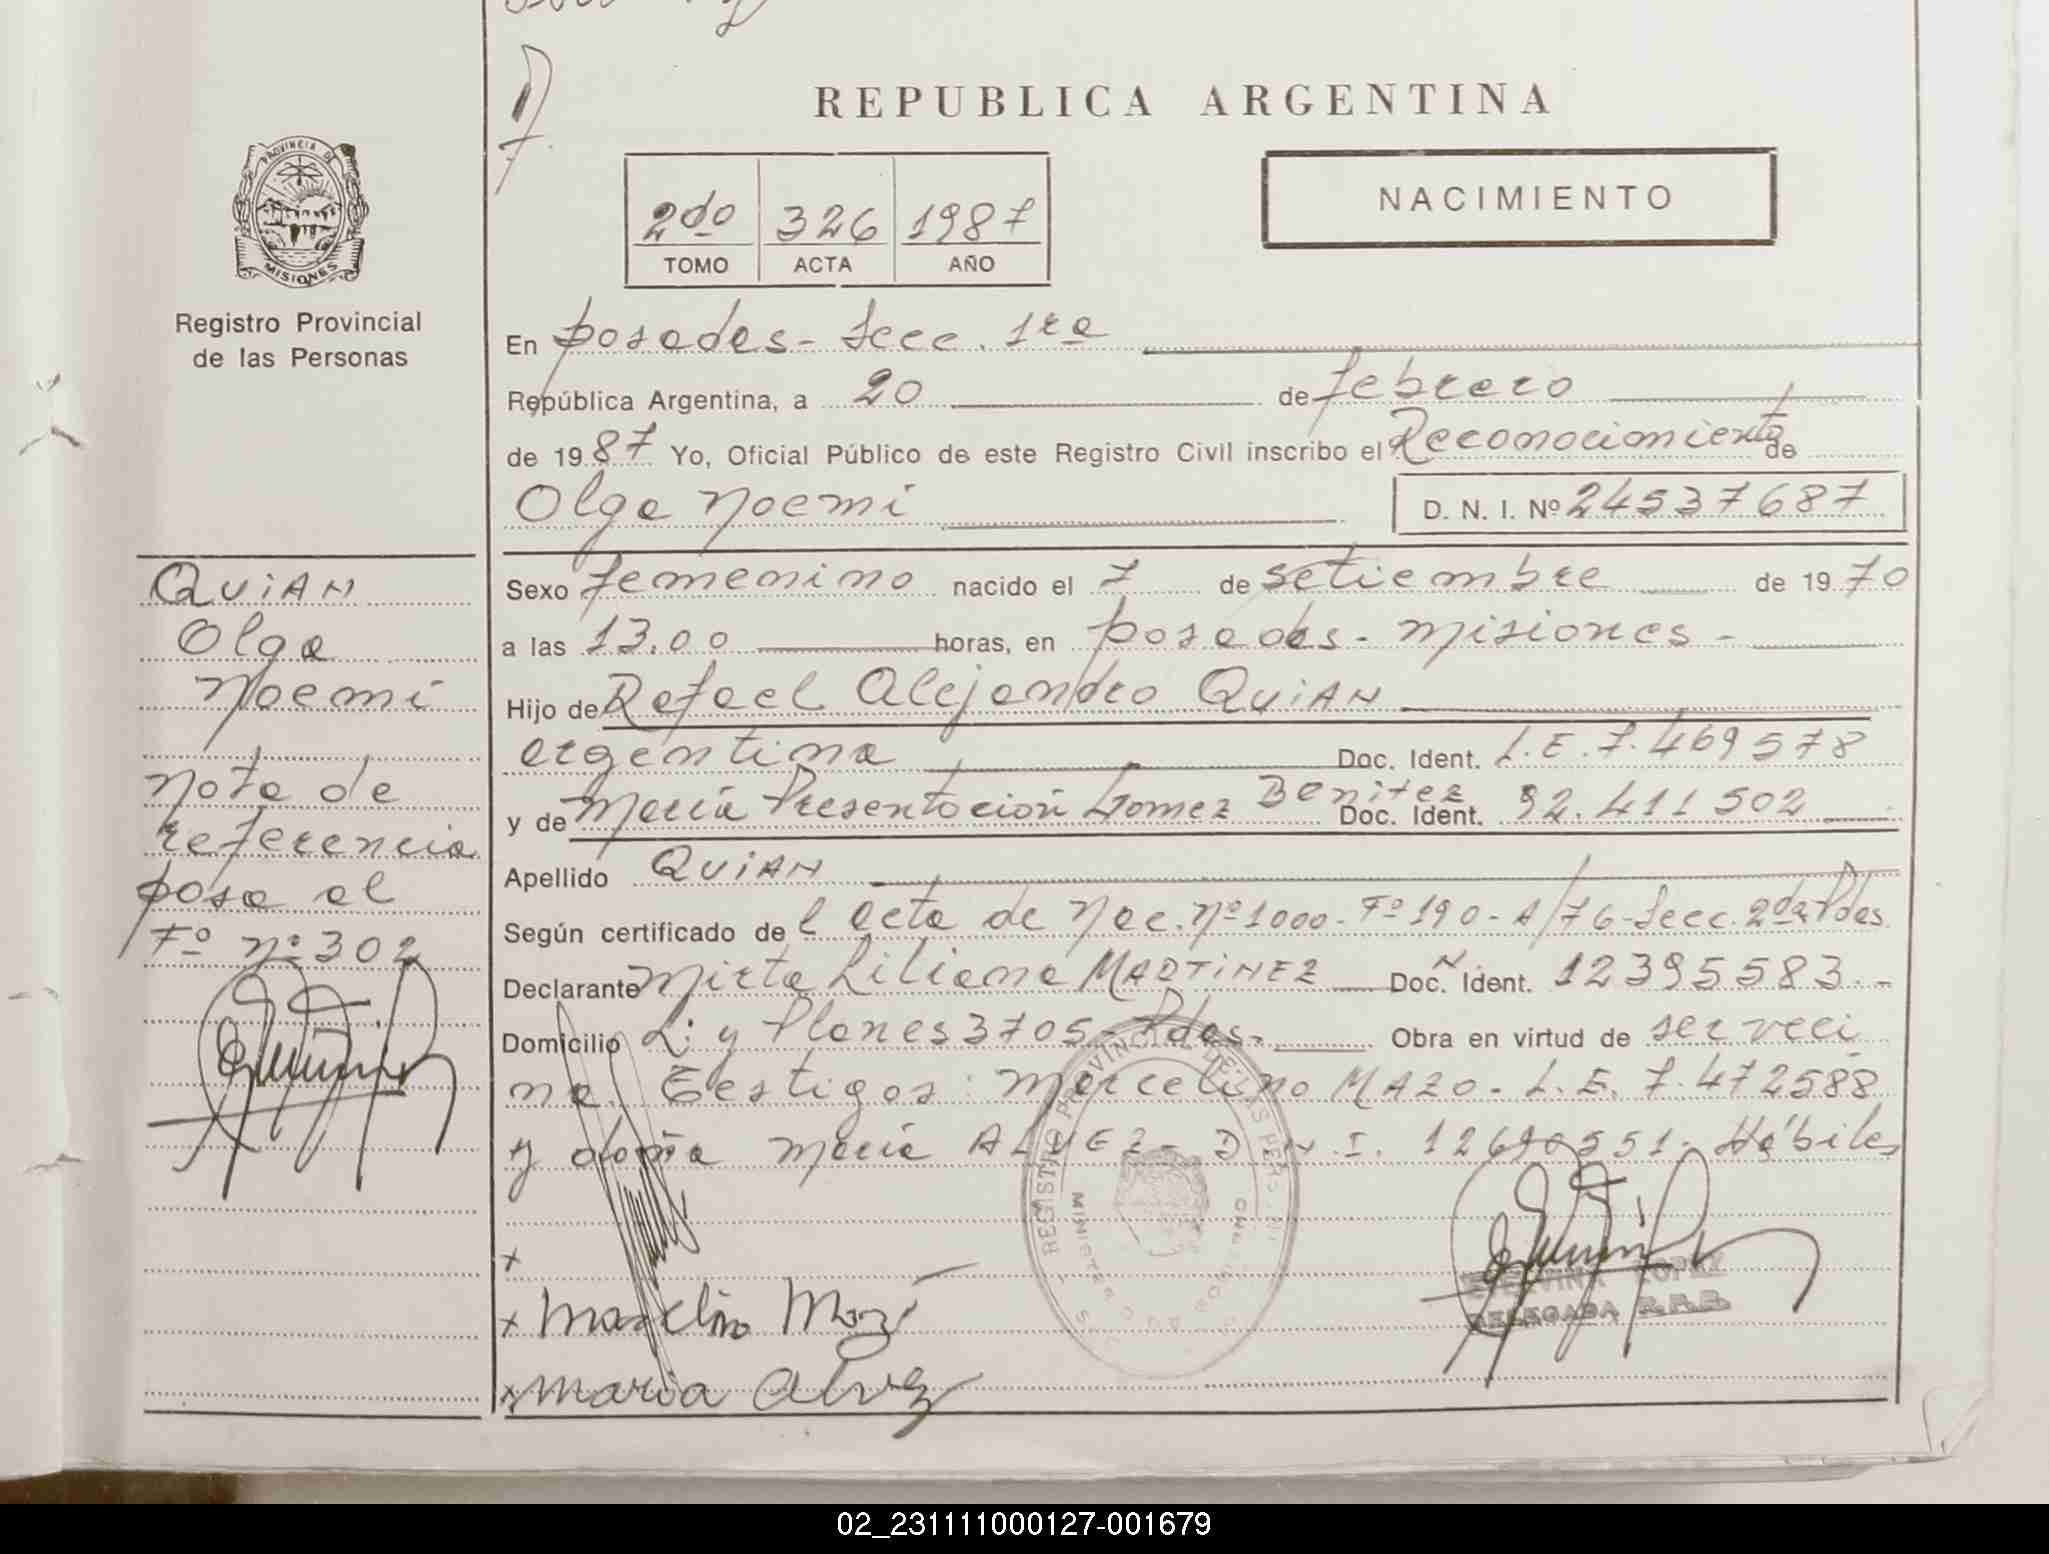 REPUBLICA ARGENTINA
NACIMIENTO
2do 326 1987
TOMO ACTA AÑO
PROVINCIA DE
MISIONES
Registro Provincial
de las Personas
En Posadas - Secc. 1ra
República Argentina, a 20 de febrero
de 1987 Yo, Oficial Público de este Registro Civil inscribo el Reconocimiento de
Olga Noemi D. N. I. Nº 24537687
Sexo femenino nacido el 7 de setiembre de 1970
a las 13.00 horas, en Posadas - Misiones -
Hijo de Rafael Alejandro QUiAN
argentina Doc. Ident. L.E. 7.469578
y de María Presentación Gomez Benitez Doc. Ident. 92.411502
Apellido QUiAN
Según certificado de l acta de Nac. Nº 1000 - Fº 190 - A/76 - Secc. 2da Pdas.
Declarante Mirta Liliana MARTiNEZ Doc. Ident. 12395583.-
Domicilio L. y Planes 3705 - Pdas. - Obra en virtud de ser veci
na. Testigos: Marcelino MAZO - L.E. 7.472588
y doña María ALVEZ - D.N.I. 12690551. Hábiles
x
x Marcelino Mazo
x maria alvez
QUiAN
Olga
Noemi
Nota de
referencia
pasa al
Fº Nº 302
REGISTRO PROVINCIAL DE LAS PERS.
DELEGADA R.P.P.
02_231111000127-001679